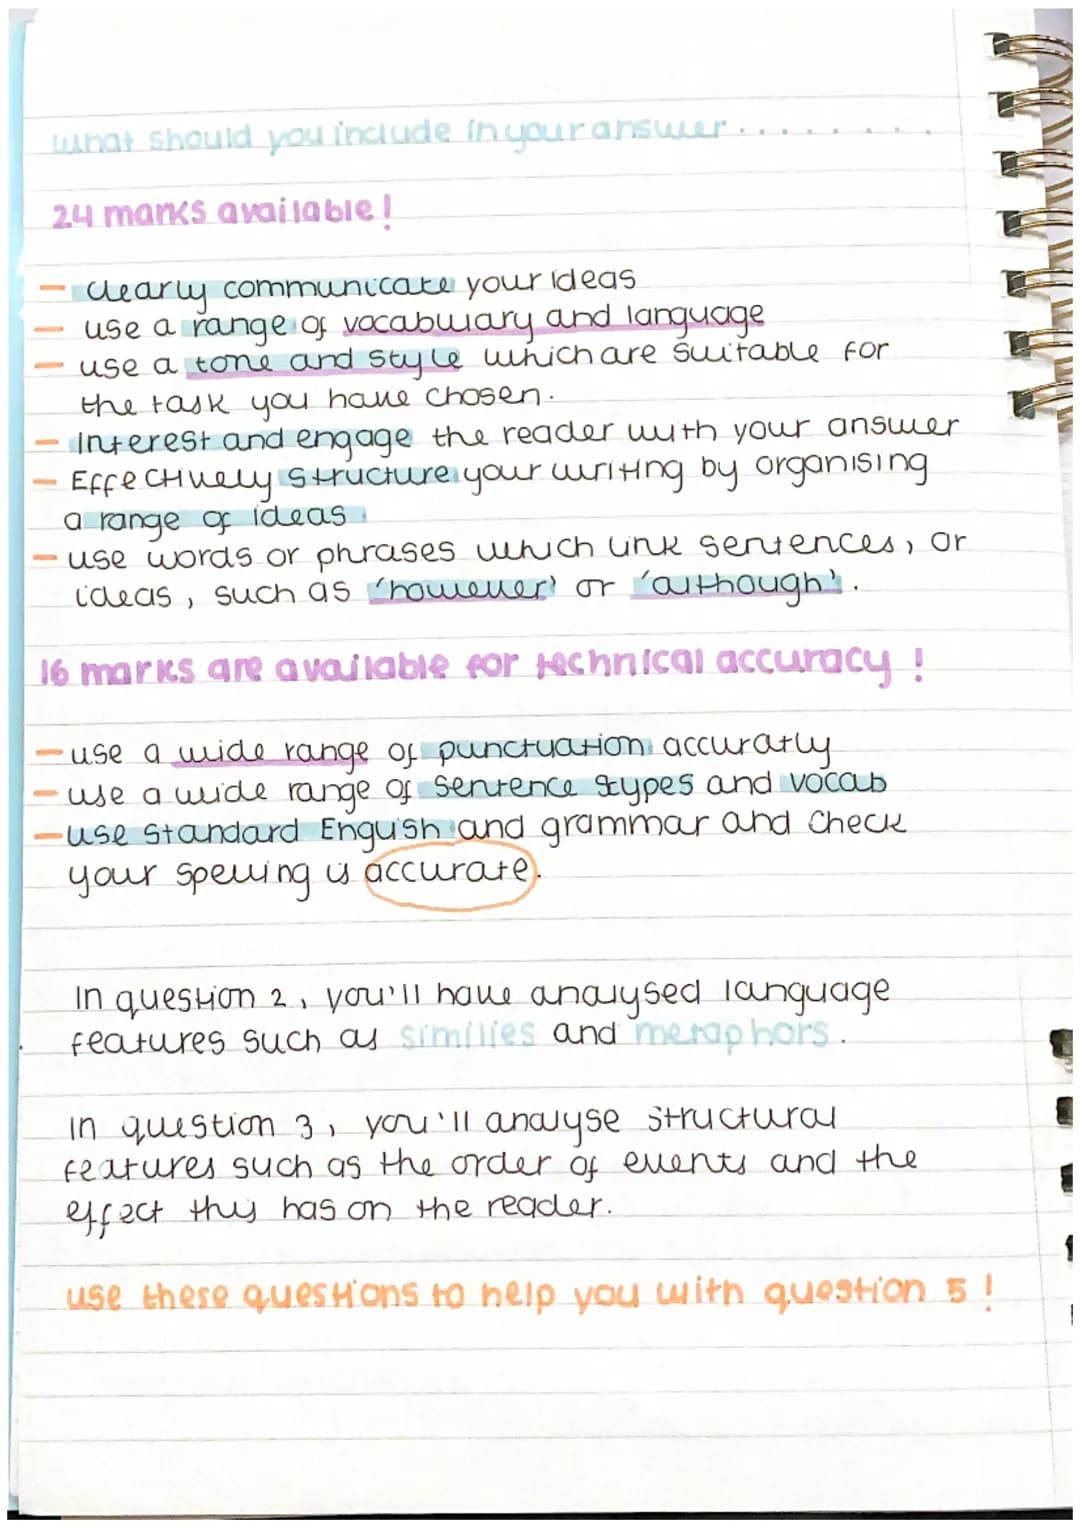 what should you include in your answer........
24 marks available!
- clearly communicate your ideas
- use a range of vocabulary and language
- use a tone and style which are suitable for
the task you have chosen.
- interest and engage the reader with your answer
- Effectively structure your writing by organising
a range of ideas
- use words or phrases which link sentences, or
ideas, such as 'however' or 'although'.
16 marks are available for technical accuracy!
- use a wide range of punctuation accuratly
- use a wide range of sentence types and vocab
- use Standard English and grammar and check
your spelling is accurate.
In question 2, you'll have analysed language
features such as similies and metaphors.
In question 3, you'll analyse structural
features such as the order of events and the
effect this has on the reader.
use these questions to help you with question 5!